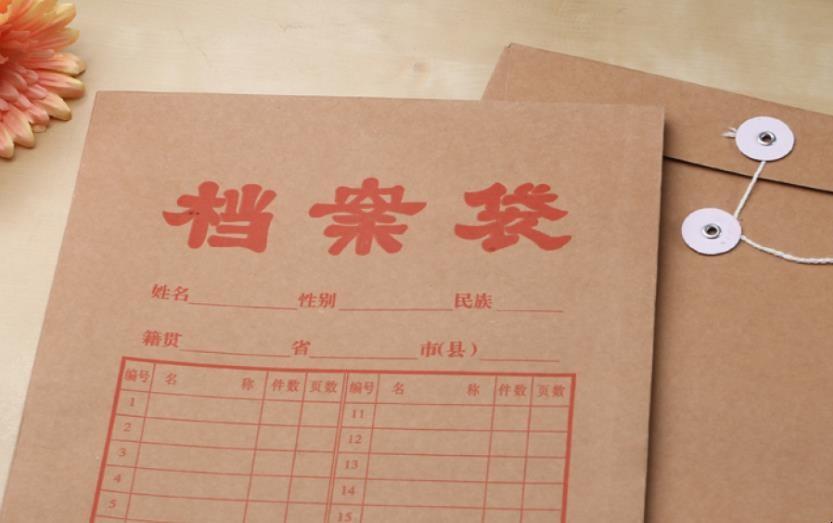 档案袋
姓名__________性别__________民族______
籍贯__________省__________市(县)_______
编号 名 称 件数 页数 编号 名 称 件数 页数
1 11
2 12
3 13
4 14
5 15